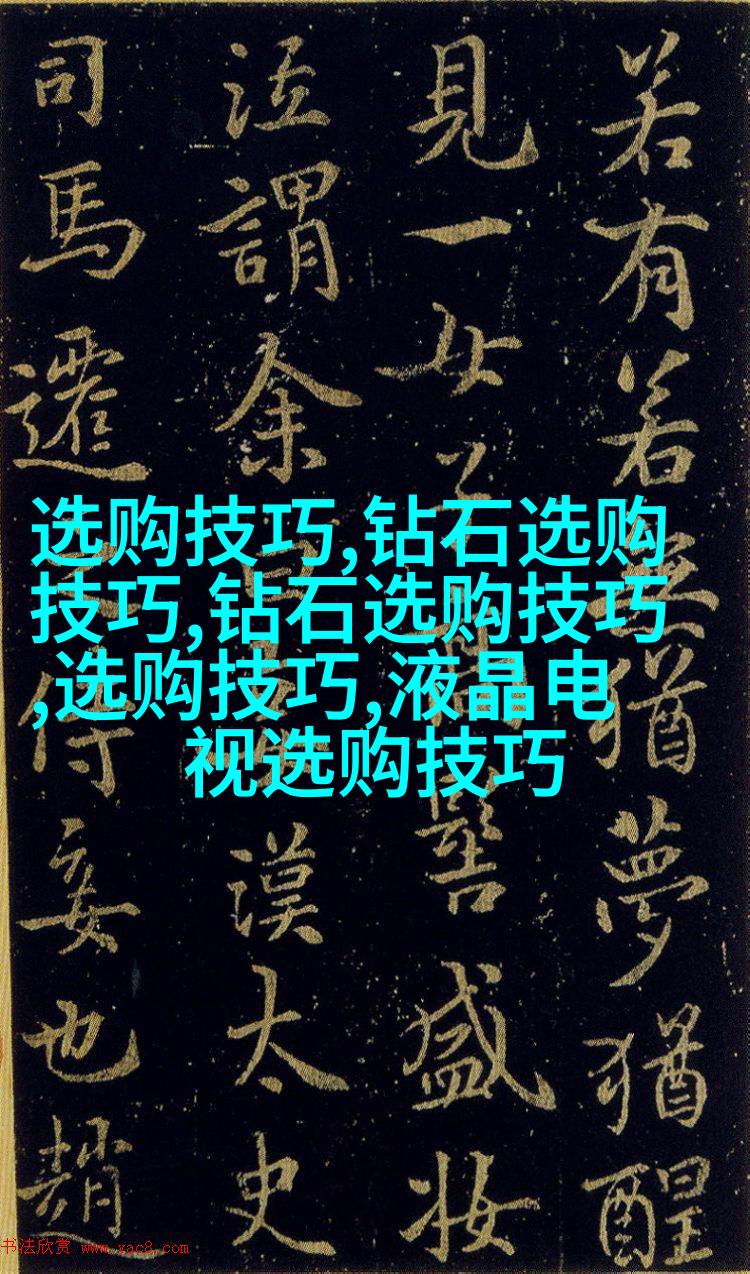 若有若無猶夢猶醒
見一女子髻盛妝
泣謂余曰漢太史
司馬遷之侍妾也趙
选购技巧,钻石选购
技巧,钻石选购技巧
,选购技巧,液晶电
视选购技巧
书法欣赏 www.yac8.com